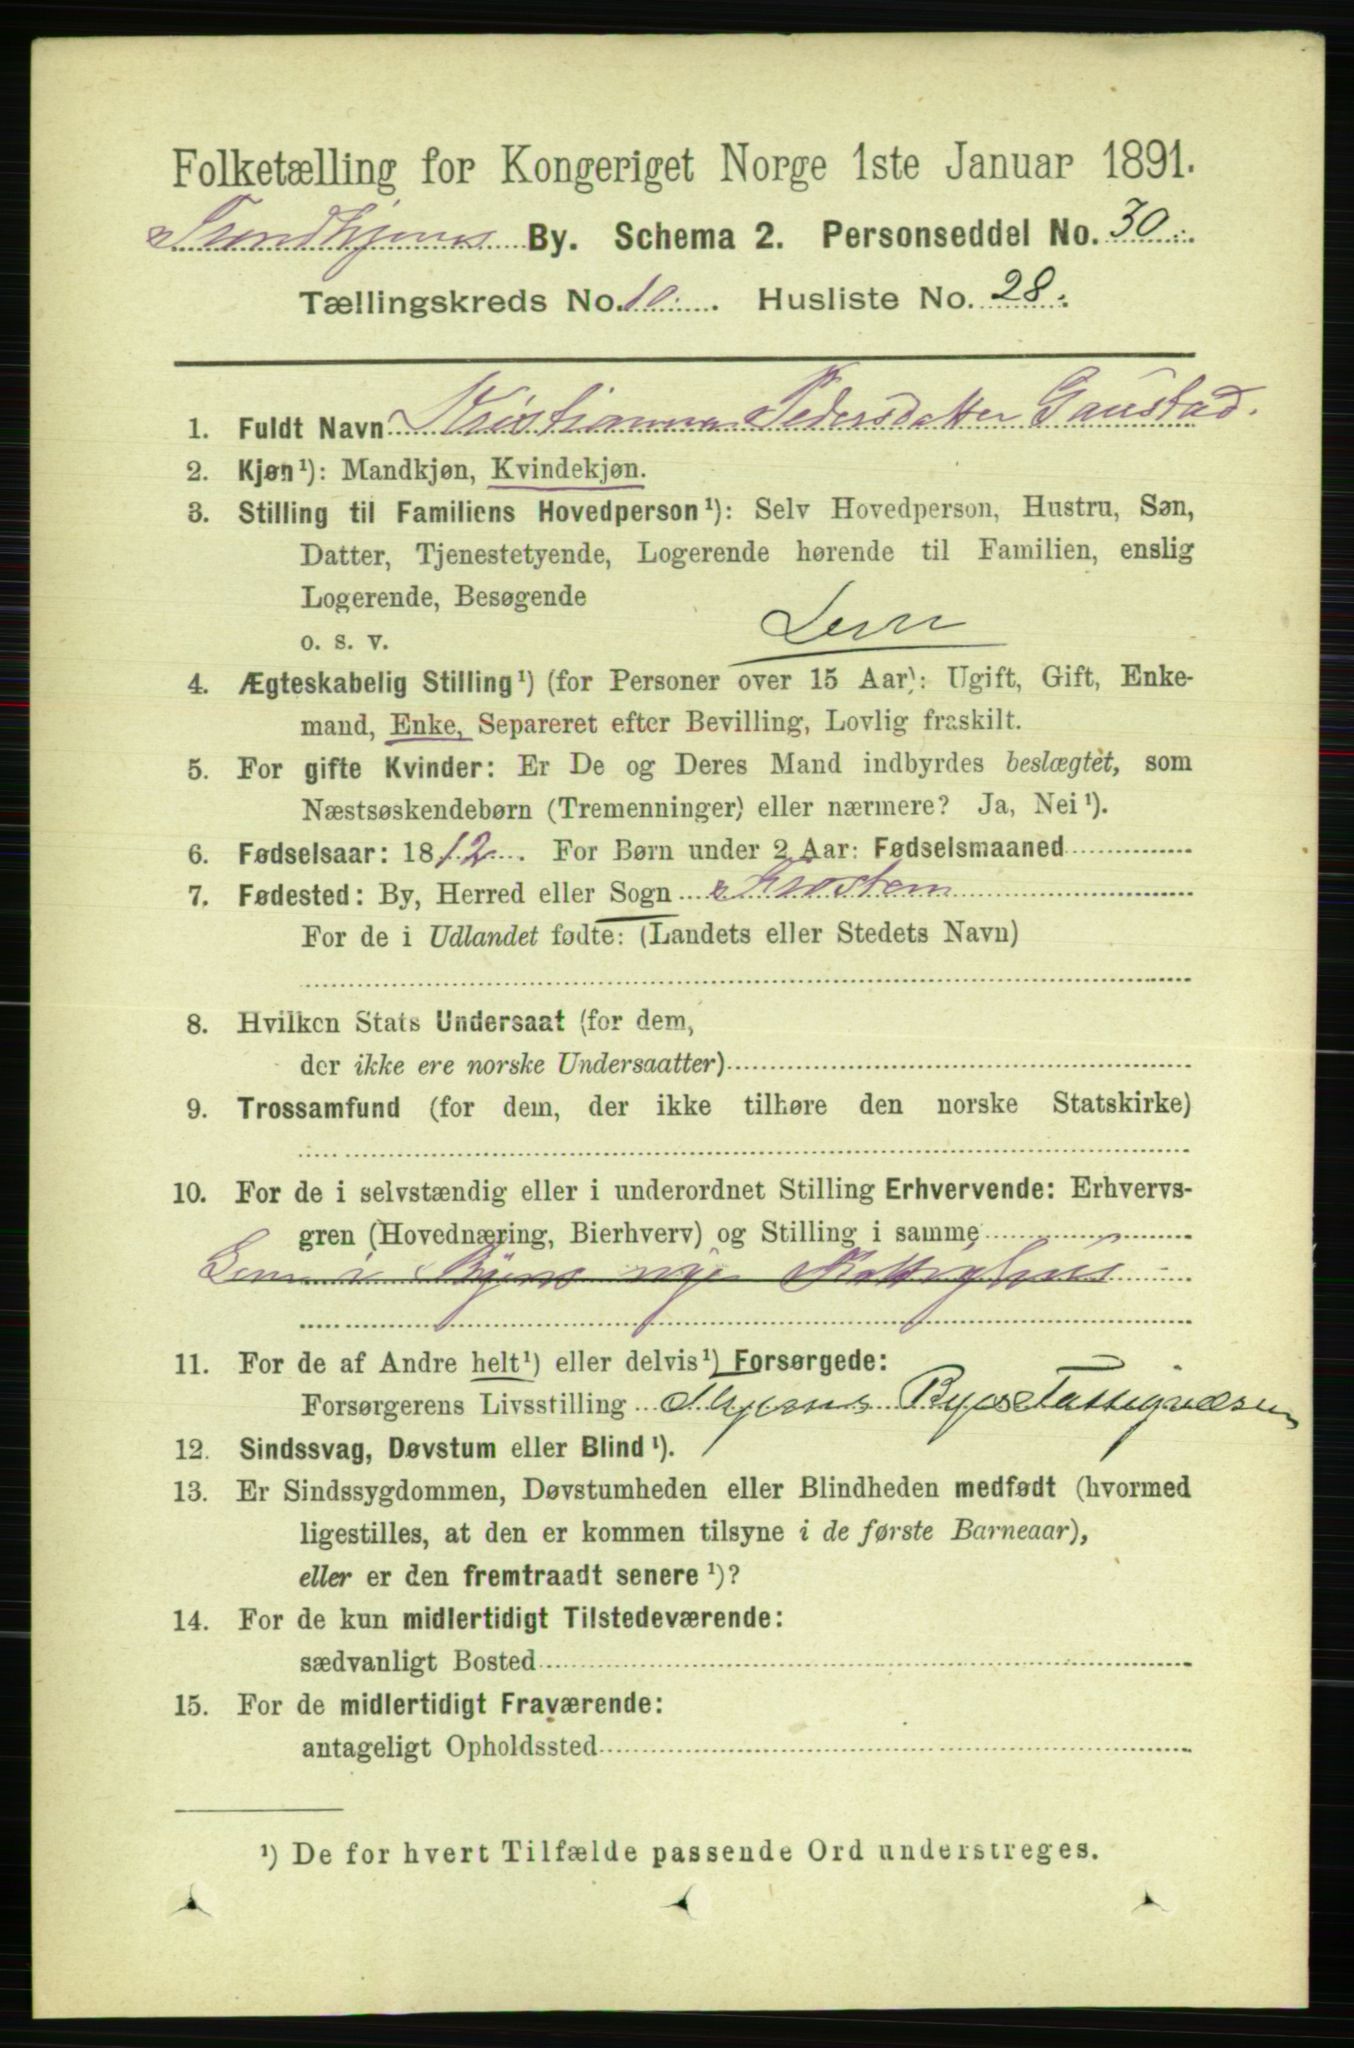 Folketælling for Kongeriget Norge 1ste Januar 1891.
Trondhjems By. Schema 2. Personseddel No. 30.
Tællingskreds No. 10. Husliste No. 28.
1. Fuldt Navn Kristianna Pedersdatter Gaustad.
2. Kjøn¹): Mandkjøn, Kvindekjøn.
3. Stilling til Familiens Hovedperson¹): Selv Hovedperson, Hustru, Søn,
Datter, Tjenestetyende, Logerende hørende til Familien, enslig
Logerende, Besøgende
o. s. v. Lem
4. Ægteskabelig Stilling¹) (for Personer over 15 Aar): Ugift, Gift, Enke-
mand, Enke, Separeret efter Bevilling, Lovlig fraskilt.
5. For gifte Kvinder: Er De og Deres Mand indbyrdes beslægtet, som
Næstsøskendebørn (Tremenninger) eller nærmere? Ja, Nei¹).
6. Fødselsaar: 1812. For Børn under 2 Aar: Fødselsmaaned
7. Fødested: By, Herred eller Sogn
For de i Udlandet fødte: (Landets eller Stedets Navn)
8. Hvilken Stats Undersaat (for dem,
der ikke ere norske Undersaatter)
9. Trossamfund (for dem, der ikke tilhøre den norske Statskirke)
10. For de i selvstændig eller i underordnet Stilling Erhvervende: Erhvervs-
gren (Hovednæring, Bierhverv) og Stilling i samme
Lem i Byens nye Fattighus
11. For de af Andre helt¹) eller delvis¹) Forsørgede:
Forsørgerens Livsstilling Thjems Bys Fattigvæsen
12. Sindssvag, Døvstum eller Blind¹).
13. Er Sindssygdommen, Døvstumheden eller Blindheden medfødt (hvormed
ligestilles, at den er kommen tilsyne i de første Barneaar),
eller er den fremtraadt senere¹)?
14. For de kun midlertidigt Tilstedeværende:
sædvanligt Bosted
15. For de midlertidigt Fraværende:
antageligt Opholdssted
¹) De for hvert Tilfælde passende Ord understreges.